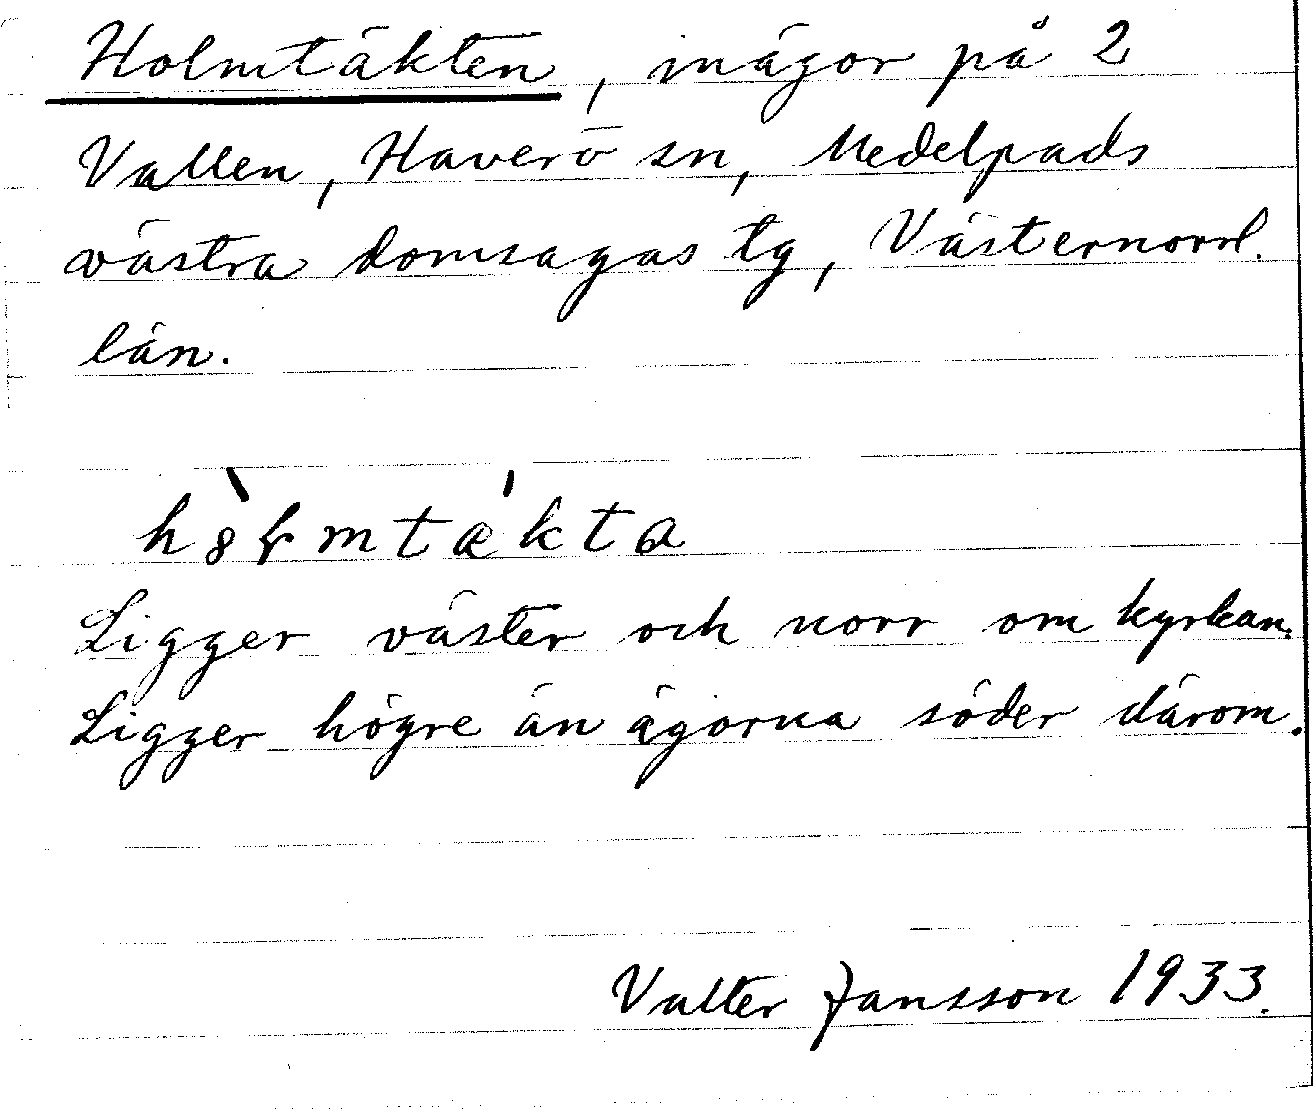 Holmtäkten, inägor på 2
Vallen, Haverö sn, Medelpads
västra domsagas tg, Västernorrl.
län.
hò̀ɽmtǽkta
Ligger väster och norr om kyrkan.
Ligger högre än ägorna söder därom.
Valter Jansson 1933.